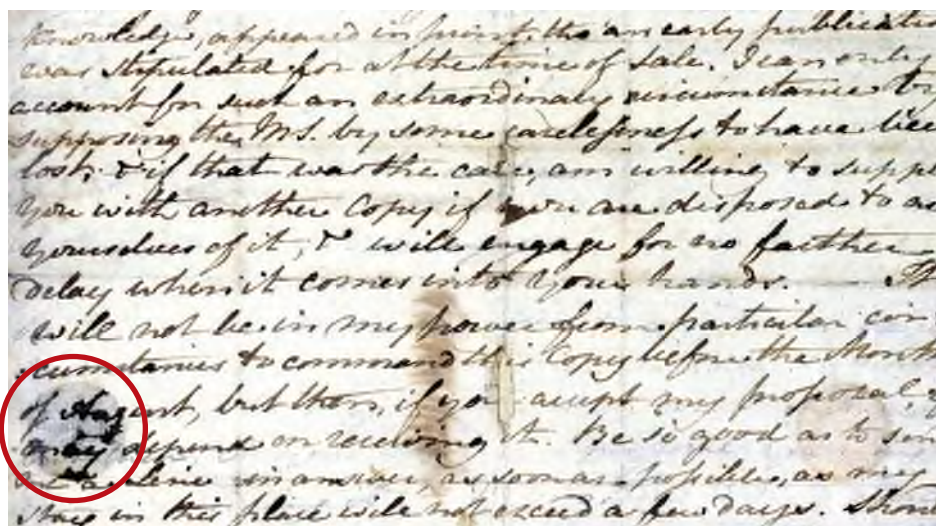 knowledge, appeared in print, tho an early publicatio
was stipulated for at the time of Sale. I can only
account for such an extraordinary circumstance by
supposing the MS. by some carelessness to have bee
lost; & if that was the case, am willing to suppl
you with another Copy if you are disposed to a
yourselves of it, & will engage for no farther
delay when it comes into your hands. It
will not be in my power from particular cir
cumstances to command this Copy before the Month
of August, but then, if you accept my proposal, y
may depend on receiving it. Be so good as to sen
me a Line in answer, as soon as possible, as my
stay in this place will not exceed a few days. Shou